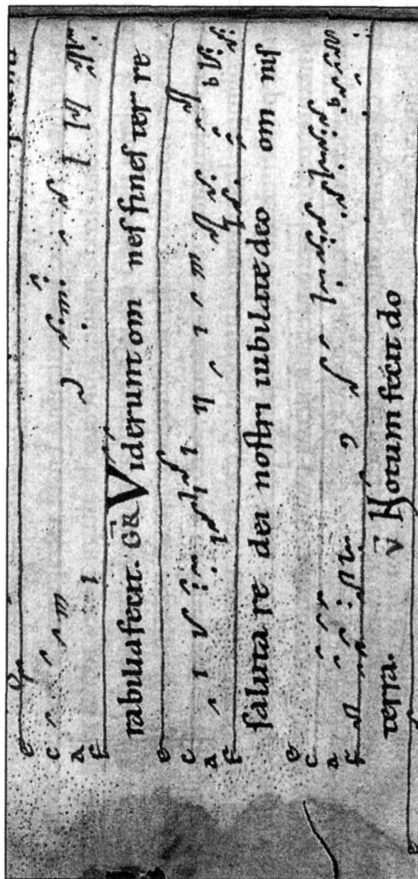 e
c
a
f
rabilia fecit. GR Viderunt om neſ fineſ ter re
e
c
a
f
ſaluta re dei noſtri iubilate deo om niſ
e
c
a
f
terra. V̄ Notum fecit do
e